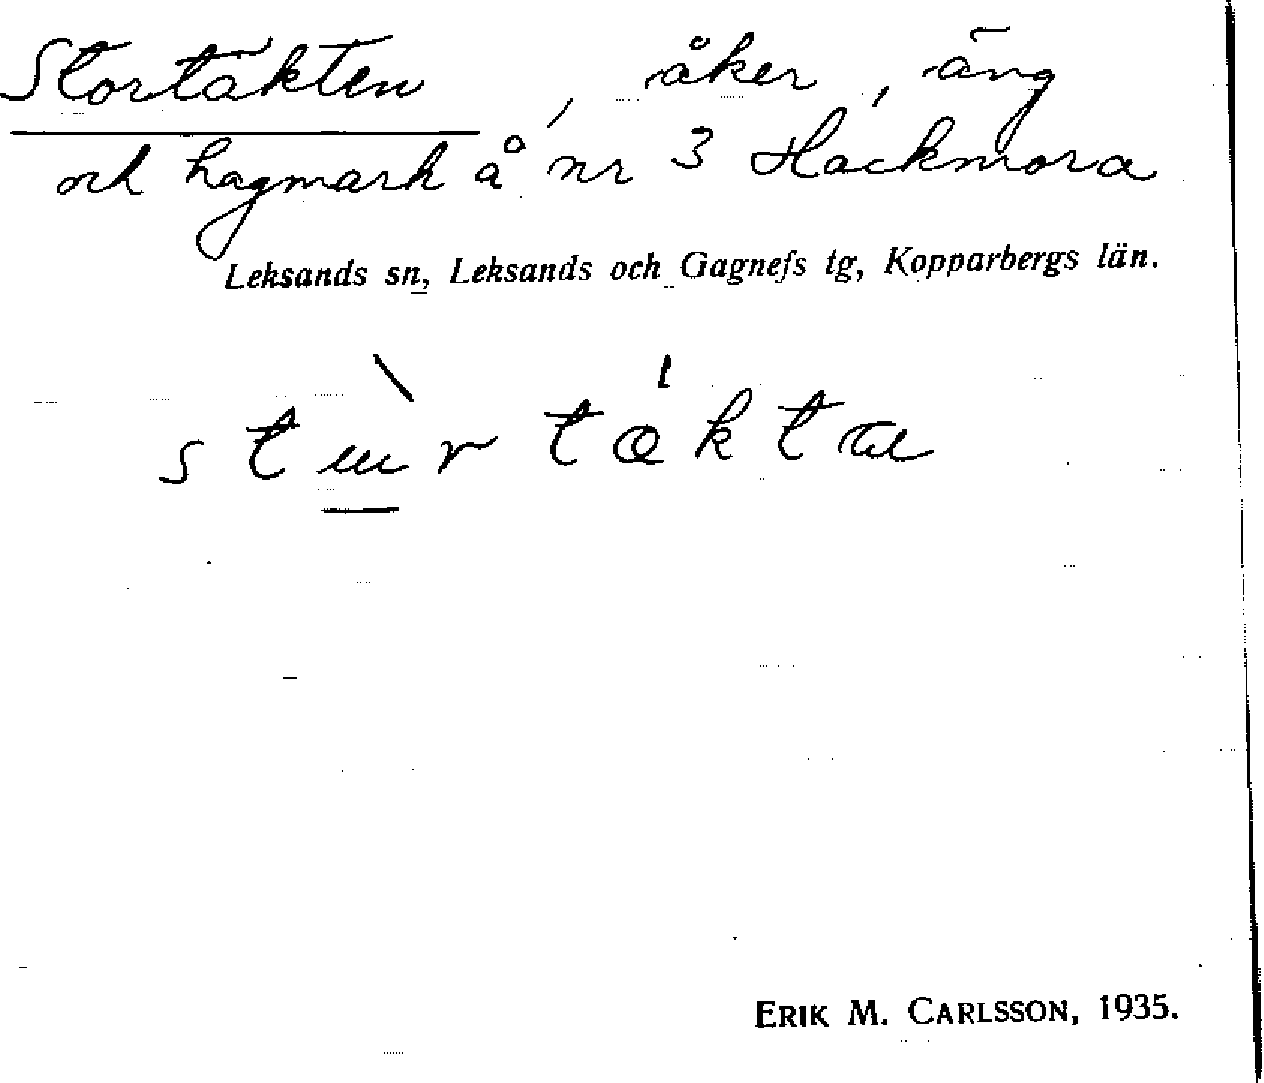 Stortäkten, åker, äng
och hagmark å nr 3 Hackmora
Leksands sn, Leksands och Gagnefs tg, Kopparbergs län.
ERIK M. CARLSSON, 1935.